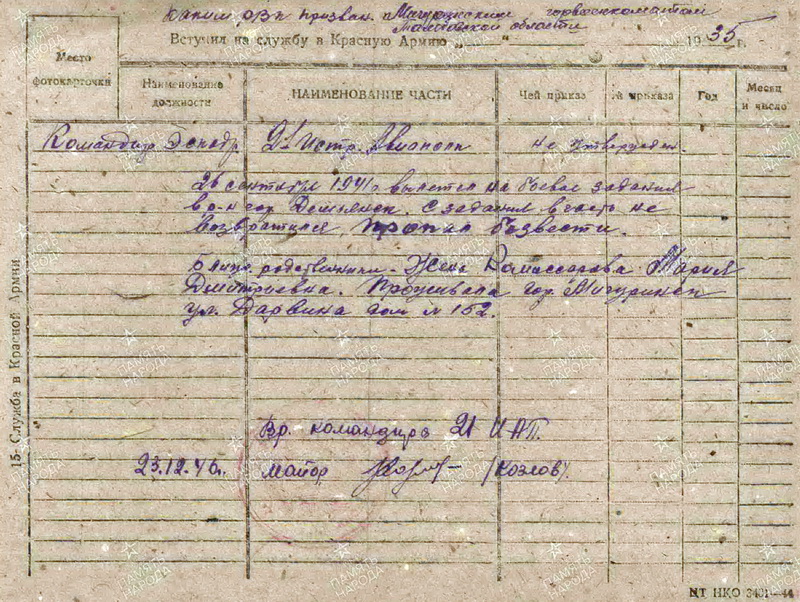 Каким РВК призван. Мичуринским горвоенкоматом
Тамбовской области
Вступил на службу в Красную Армию „ “ 1935 г.
Место
фотокарточки
Наименование
должности
НАИМЕНОВАНИЕ ЧАСТИ
Чей приказ
№ приказа
Год
Месяц
и число
Командир Эскадр. 21 Истр. Авиаполк не утвержден.
26 сентября 1941 г вылетел на боевое задание
в р-н гор Демьянск. С задания в часть не
возвратился Пропал безвести.
Ближ. родственники - Жена Комиссарова Мария
Дмитриевна. Проживала гор. Мичуринск
ул. Дарвина дом № 152.
Вр. командира 21 ИАП.
23.12.46г. майор (Козлов).
15 Служба в Красной Армии
ЦТ НКО 3401—44
ПАМЯТЬ
НАРОДА